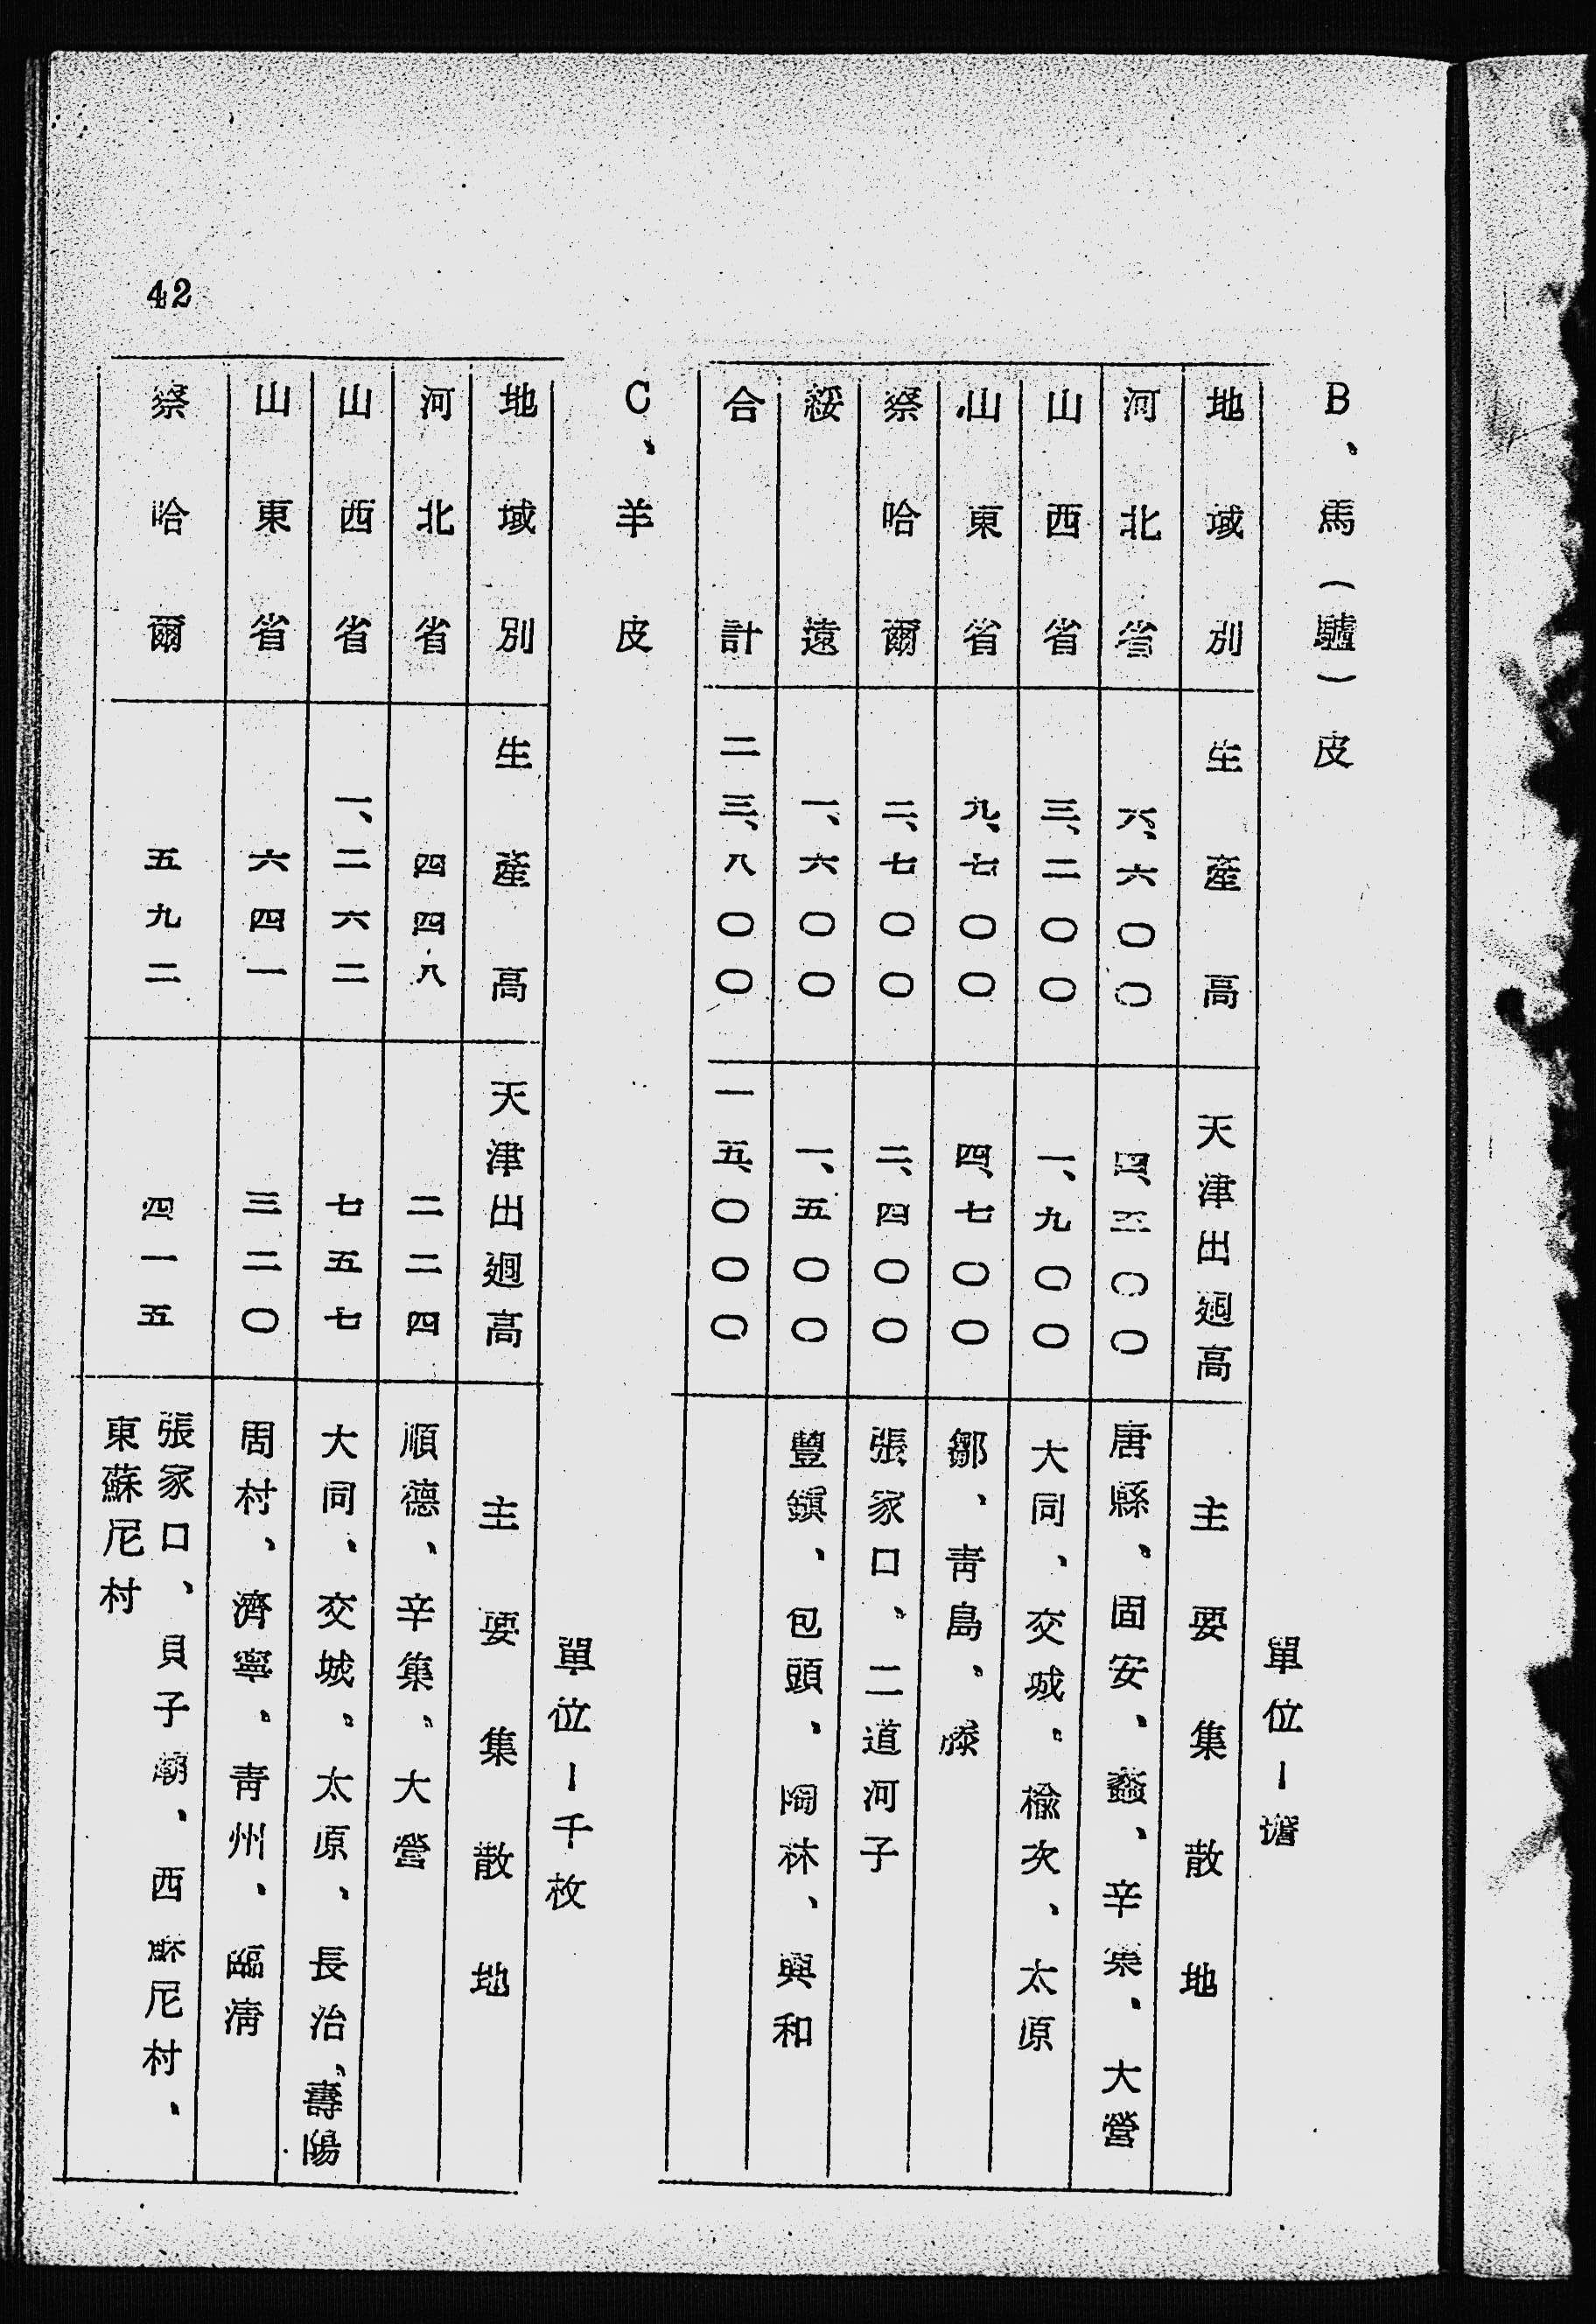 B、馬（驢）皮
單位ー擔
地域別 生產高 天津出廻高 主要集散地
河北省 六、六〇〇 四、五〇〇 唐縣、固安、蠡、辛集、大營
山西省 三、二〇〇 一、九〇〇 大同、交城、楡次、太原
山東省 九、七〇〇 四、七〇〇 鄒、靑島、滕
察哈爾 二、七〇〇 二、四〇〇 張家口、二道河子
綏遠 一、六〇〇 一、五〇〇 豐鎭、包頭、陶林、興和
合計 二三、八〇〇 一五、〇〇〇
C、羊皮
單位ー千枚
地域別 生產高 天津出廻高 主要集散地
河北省 四四八 二二四 順德、辛集、大營
山西省 一、二六二 七五七 大同、交城、太原、長治、壽陽
山東省 六四一 三二〇 周村、濟寧、靑州、臨淸
察哈爾 五九二 四一五 張家口、貝子廟、西蘇尼村、
東蘇尼村
42